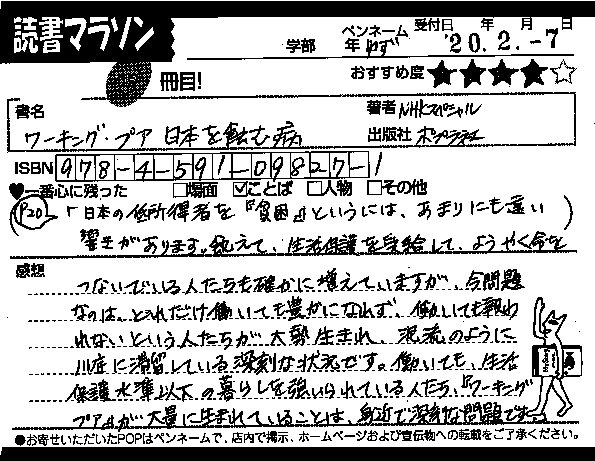 読書マラソン
冊目!
学部 年 ペンネーム ゆず 受付日 年 月 日
'20. 2. -7
おすすめ度 ★★★★☆
書名
ワーキング・プア 日本を蝕む病
著者 NHKスペシャル
出版社 ポプラ社
ISBN 978-4-591-09827-1
♥一番心に残った □場面 ☑ことば □人物 □その他
P20 「日本の低所得者を『貧困』というには、あまりにも遠い
響きがあります。飢えて、生活保護を受給して、ようやく命を
感想
つないでいる人たちも確かに増えていますが、今問題
なのは、どれだけ働いても豊かになれず、働いても報わ
れないという人たちが大勢生まれ、泥流のように
川底に滞留している深刻な状況です。働いても、生活
保護水準以下の暮らしを強いられている人たち、『ワーキング
プア』が大量に生まれていることは、身近で深刻な問題です。
●お寄せいただいたPOPはペンネームで、店内で掲示、ホームページおよび宣伝物への転載をご了承ください。